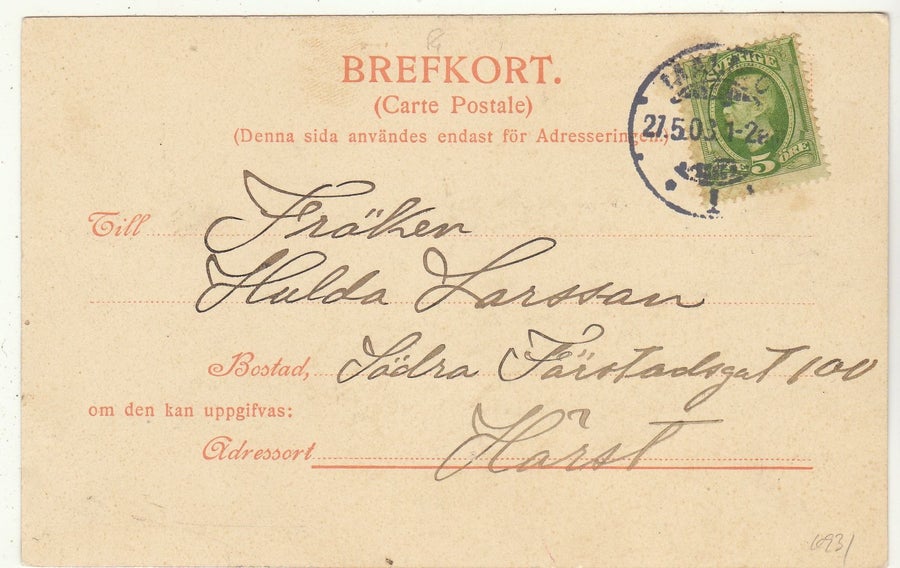 BREFKORT.
(Carte Postale)
(Denna sida användes endast för Adresseringen.)
SVERIGE
27.5.03. 1-2
5 ÖRE
1
Till Fröken
Hulda Larsson
Bostad, Södra Förstadsgat 100
om den kan uppgifvas:
Adressort Härst
6931